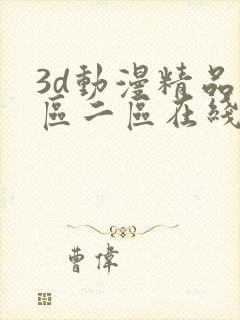 3d動漫精品
區二區在綫
曹偉